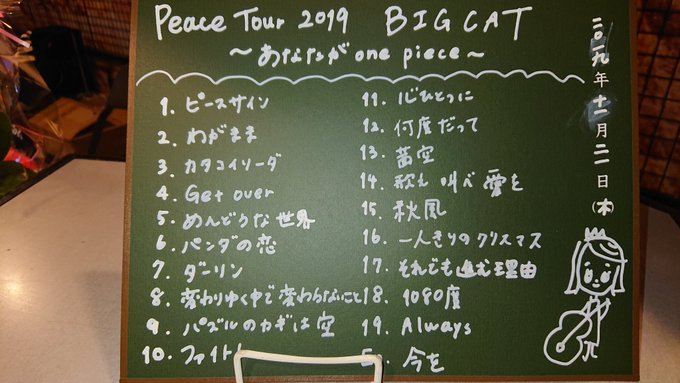 Peace Tour 2019 BIG CAT
～あなたが one piece～
二〇一九年十一月二一日(木)
1. ピースサイン
2. わがまま
3. カタコイソーダ
4. Get over
5. めんどうな世界
6. パンダの恋
7. ダーリン
8. 変わりゆく中で変わらないこと
9. パズルのカギは空
10. ファイト
11. 心ひとつに
12. 何度だって
13. 茜空
14. 歌え 叫べ 愛を
15. 秋風
16. 一人きりのクリスマス
17. それでも進む理由
18. 1080度
19. Always
今を